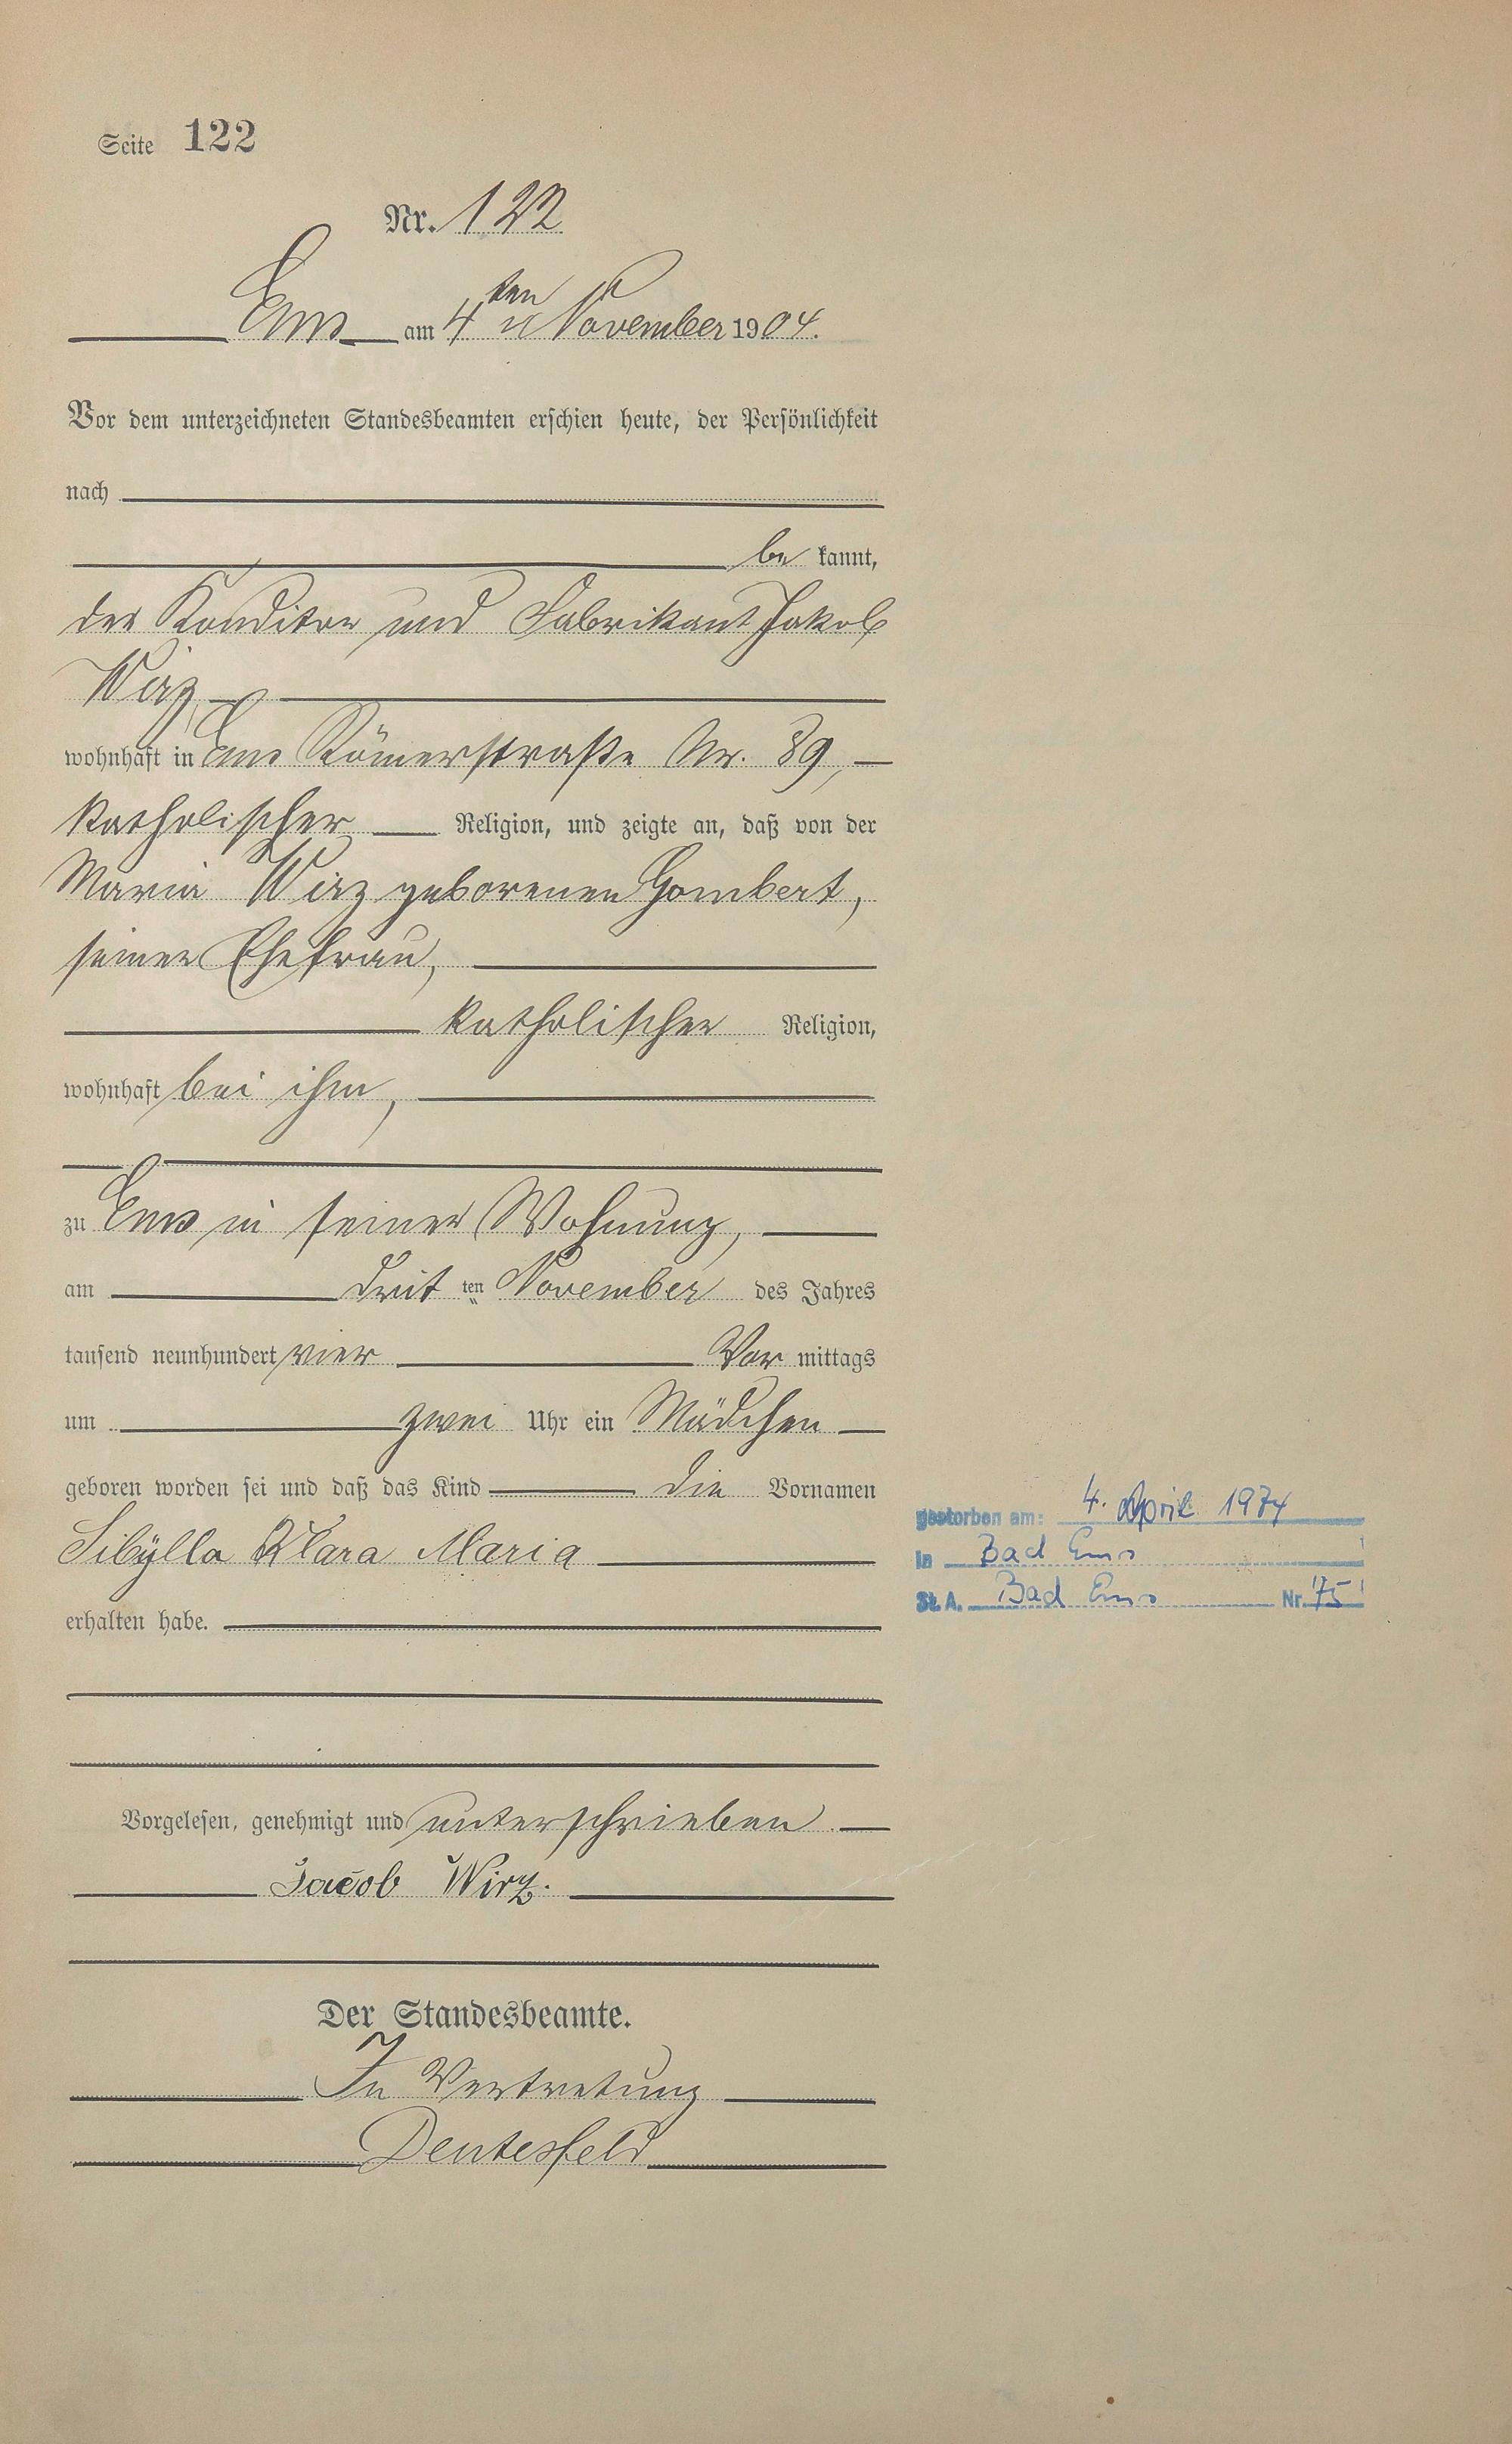 Seite 122
Nr. 122
Ems am 4ten November 1904.
Vor dem unterzeichneten Standesbeamten erschien heute, der Persönlichkeit
nach
be kannt,
der Konditor und Fabrikant Jakob
Wirz
wohnhaft in Ems Römerstraße Nr. 89,
katholischer Religion, und zeigte an, daß von der
Maria Wirz geborenen Gombert,
seiner Ehefrau,
katholischer Religion,
wohnhaft bei ihm,
zu Ems in seiner Wohnung,
am Drit ten November des Jahres
tausend neunhundert vier Vor mittags
um zwei Uhr ein Mädchen
geboren worden sei und daß das Kind die Vornamen
Sibÿlla Klara Maria
erhalten habe.
Vorgelesen, genehmigt und unterschrieben
Jacob Wirz.
Der Standesbeamte.
In Vertretung
Dentesfeld
gestorben am: 4. April 1974
in Bad Ems
St. A. Bad Ems Nr. 75